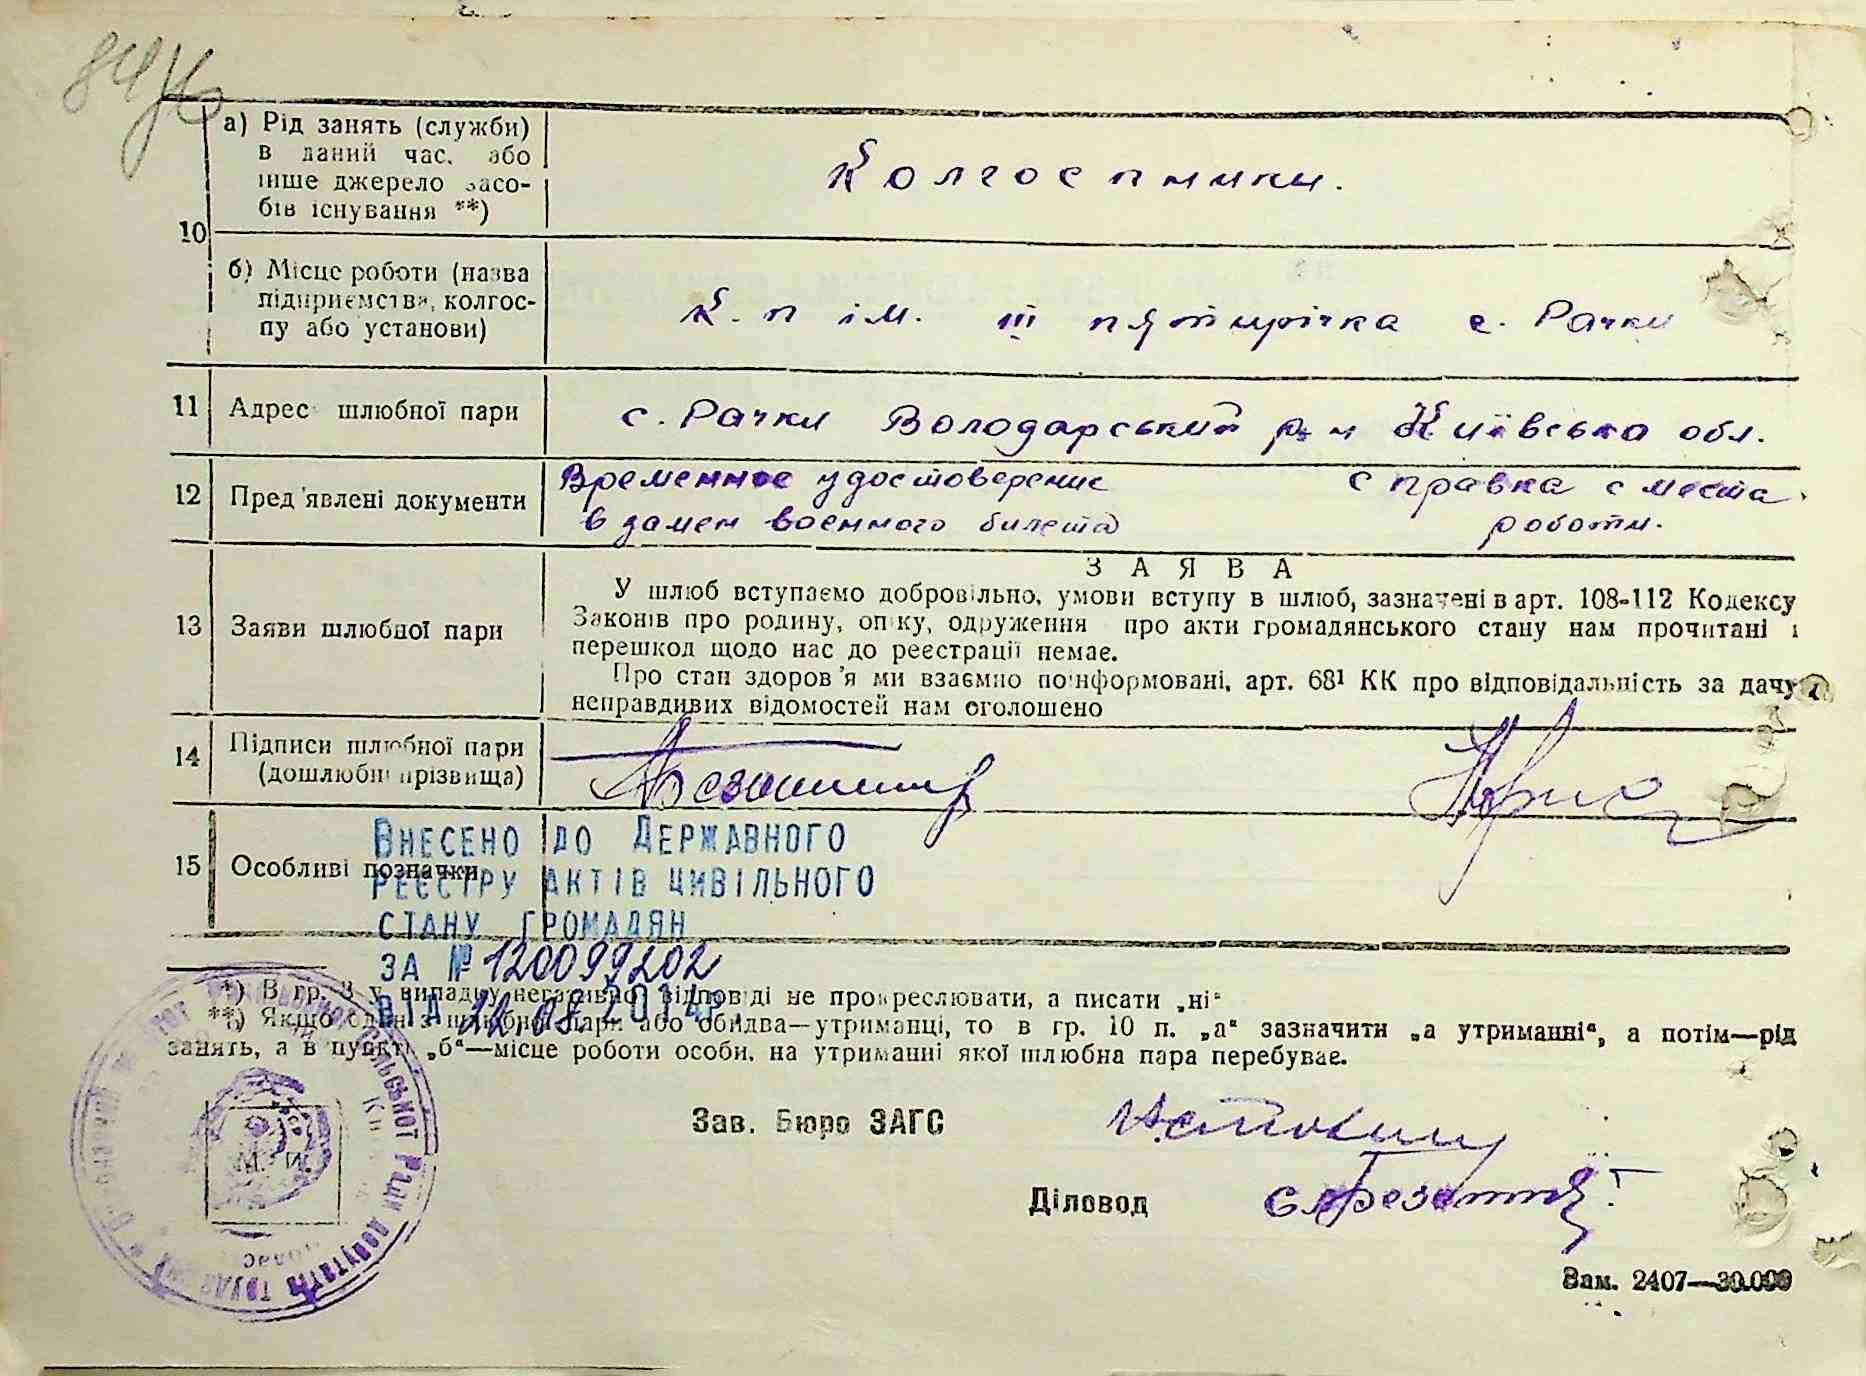 а) Рід занять (служби)
в даний час, або
інше джерело засо-
бів існування **)
Колгоспники.
10
б) Місце роботи (назва
підприємства, колгос-
пу або установи)
К. п ім. III пятирічка с. Рачки
11 Адрес шлюбної пари
с. Рачки Володарський р-н Київська обл.
12 Пред'явлені документи
Временное удостоверение
в замен военного билета
справка с места
роботи.
13 Заяви шлюбної пари
ЗАЯВА
У шлюб вступаємо добровільно, умови вступу в шлюб, зазначені в арт. 108-112 Кодексу
Законів про родину, опіку, одруження про акти громадянського стану нам прочитані і
перешкод щодо нас до реєстрації немає.
Про стан здоров'я ми взаємно поінформовані, арт. 68¹ КК про відповідальність за дачу
неправдивих відомостей нам оголошено
14 Підписи шлюбної пари
(дошлюбні прізвища)
15 Особливі позначки
Внесено до Державного
реєстру актів цивільного
стану громадян
за № 120099202
від 22.08.2014р.
*) В гр. 3 у випадку негативної відповіді не прокреслювати, а писати „ні“
**) Якщо один з шлюбної пари або обидва—утриманці, то в гр. 10 п. „а“ зазначити „а утриманні“, а потім—рід
занять, а в пункті „б“—місце роботи особи, на утриманні якої шлюбна пара перебуває.
М. П.
Зав. Бюро ЗАГС
Діловод
Зам. 2407—30.000